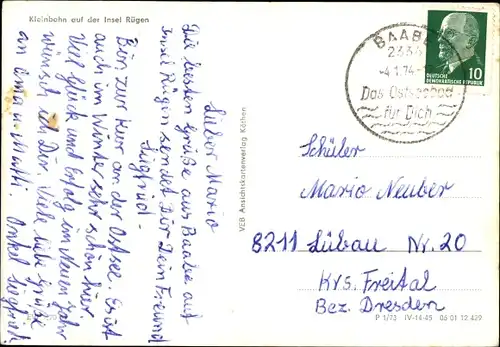 Kleinbahn auf der Insel Rügen
Lieber Mario
Die besten Grüße aus Baabe auf
Insel Rügen sendet Dir Dein Freund
Siegfried -
Bin zur Kur an der Ostsee. Es ist
auch im Winter sehr schön hier
Viel Glück und Erfolg im Neuen Jahr
wünsch ich Dir. Viele liebe Grüße
an Oma u. Mutti. Onkel Siegfried
VEB Ansichtskartenverlag Köthen
BAABE
2337
-4.1.74-
Das Ostseebad
für Dich
DEUTSCHE
DEMOKRATISCHE REPUBLIK
10
Schüler
Mario Neuber
8211 Lübau Nr. 20
Krs. Freital
Bez. Dresden
P 1/73 IV-14-45 06 01 12 429